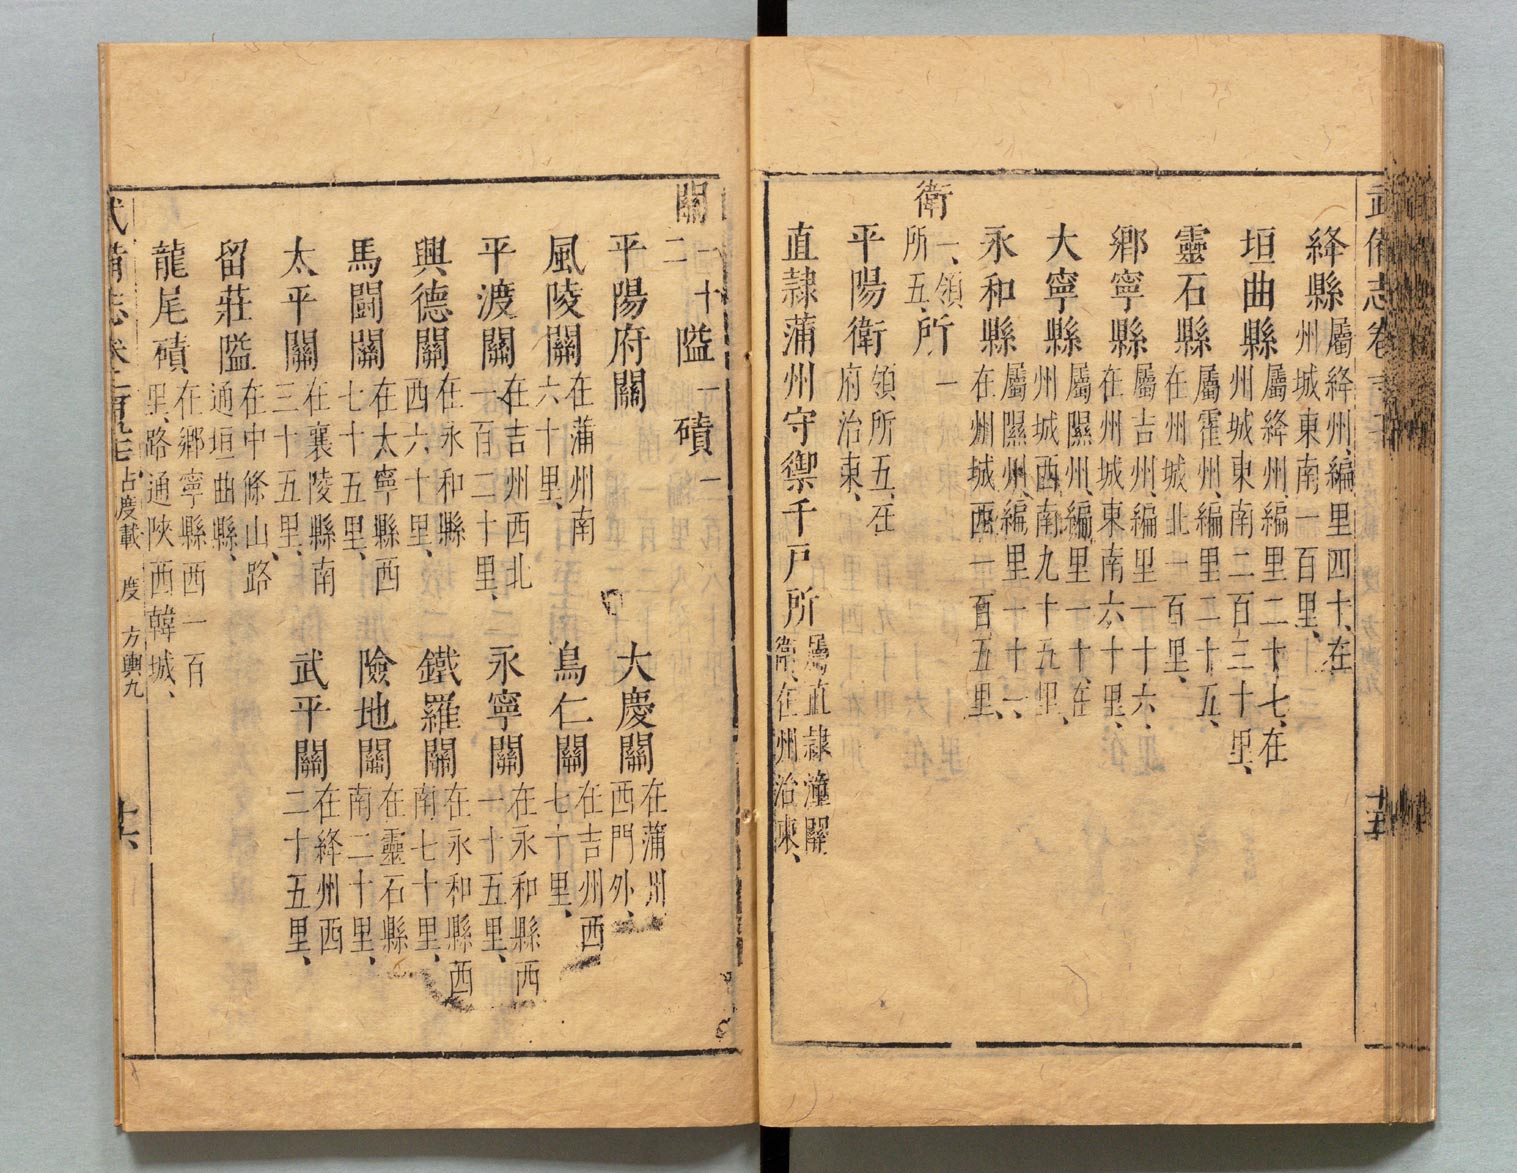 武備志卷
絳縣屬絳州、編里四十、在州城東南一百里、
垣曲縣屬絳州、編里二十七、在州城東南二百三十里、
靈石縣屬霍州、編里二十五、在州城北一百里、
鄉寧縣屬吉州、編里一十六、在州城東南六十里、
大寧縣屬隰州、編里一十、在州城西南九十五里、
永和縣屬隰州、編里一十一、在州城西一百五里、
衛一、領所五、所一
平陽衛領所五、在府治東、
直隸蒲州守禦千戶所屬直隸潼關衛、在州治東、
關一十二隘一磧一
平陽府關 大慶關在蒲州西門外、
風陵關在蒲州南六十里、 烏仁關在吉州西七十里、
平渡關在吉州西北一百二十里、 永寧關在永和縣西一十五里、
興德關在永和縣西六十里、 鐵羅關在永和縣西南七十里、
馬鬭關在大寧縣西七十五里、 險地關在靈石縣南二十里、
太平關在襄陵縣南三十五里、 武平關在絳州西二十五里、
留莊隘在中條山、路通垣曲縣、
龍尾磧在鄉寧縣西一百里、路通陝西韓城、
武備志 占度載 度 方輿九 十六